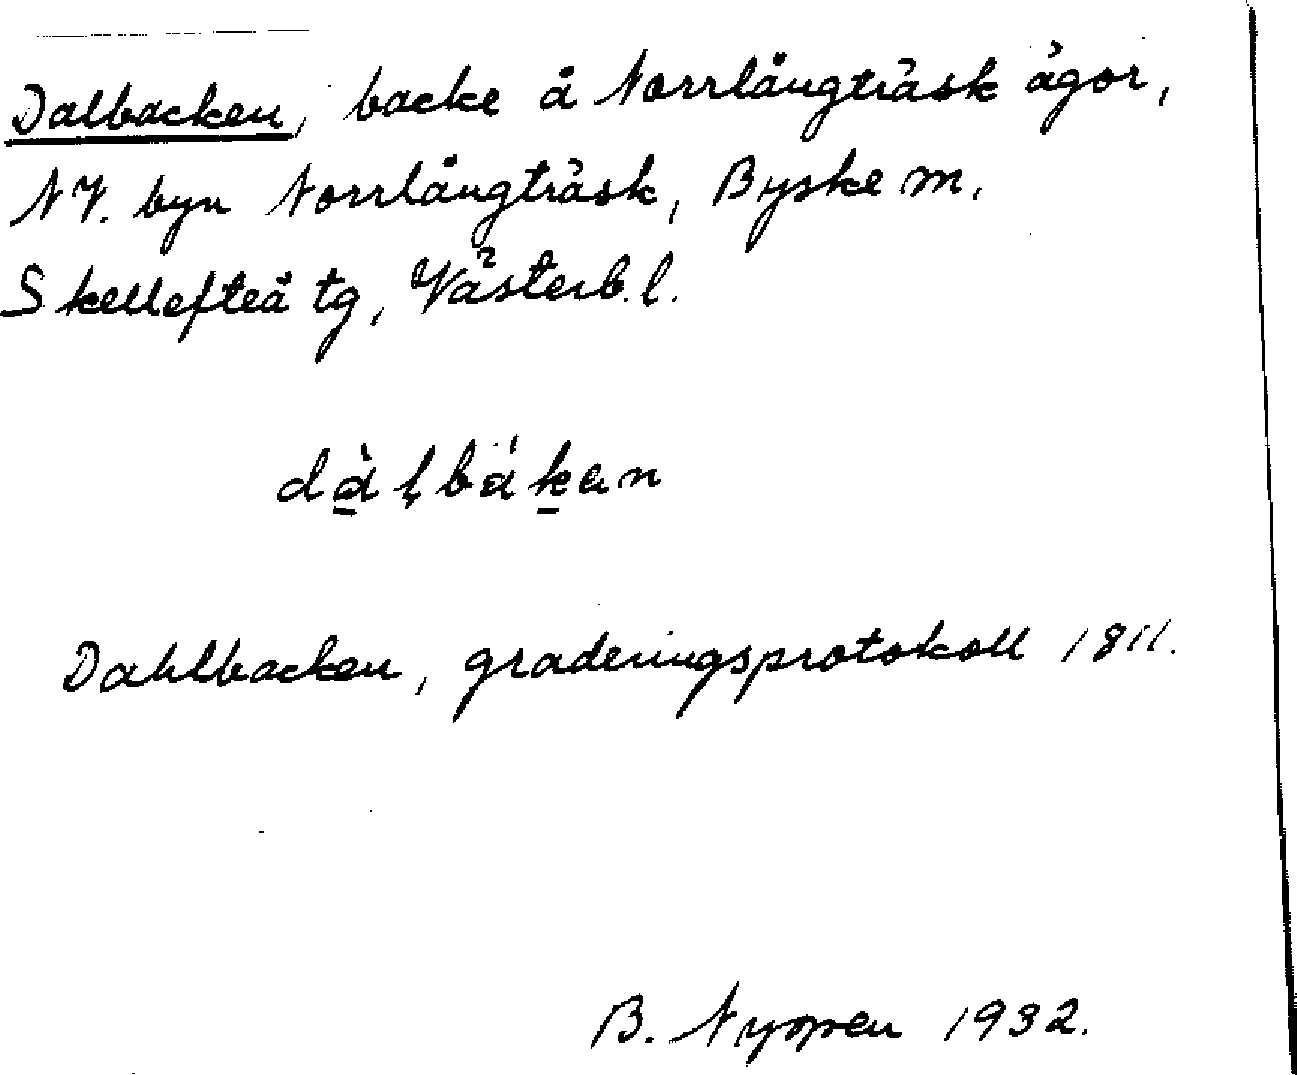 Dalbacken, backe å Norrlångträsk ägor,
NV. byn Norrlångträsk, Byske m.
Skellefteå tg, Västerb. l.
dàḷbákan
Dahlbacken, graderingsprotokoll 1811.
B. Nyppen 1932.